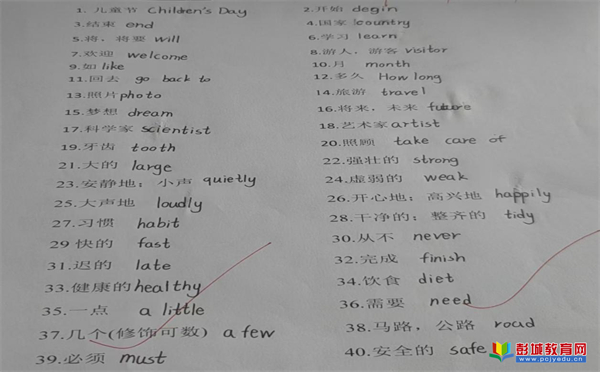 1. 儿童节 Children's Day 2.开始 degin
3.结束 end 4.国家 lecountry
5.将，将要 will 6.学习 learn
7.欢迎 welcome 8.游人，游客 visitor
9.如 like 10.月 month
11.回去 go back to 12.多久 How long
13.照片 photo 14.旅游 travel
15.梦想 dream 16.将来，未来 future
17.科学家 scientist 18.艺术家 artist
19.牙齿 tooth 20.照顾 take care of
21.大的 large 22.强壮的 strong
23.安静地；小声 quietly 24.虚弱的 weak
25.大声地 loudly 26.开心地；高兴地 happily
27.习惯 habit 28.干净的；整齐的 tidy
29 快的 fast 30.从不 never
31.迟的 late 32.完成 finish
33.健康的 healthy 34.饮食 diet
35.一点 a little 36.需要 need
37.几个(修饰可数) a few 38.马路，公路 road
39.必须 must 40.安全的 safe
彭城教育网
www.pcjyedu.cn